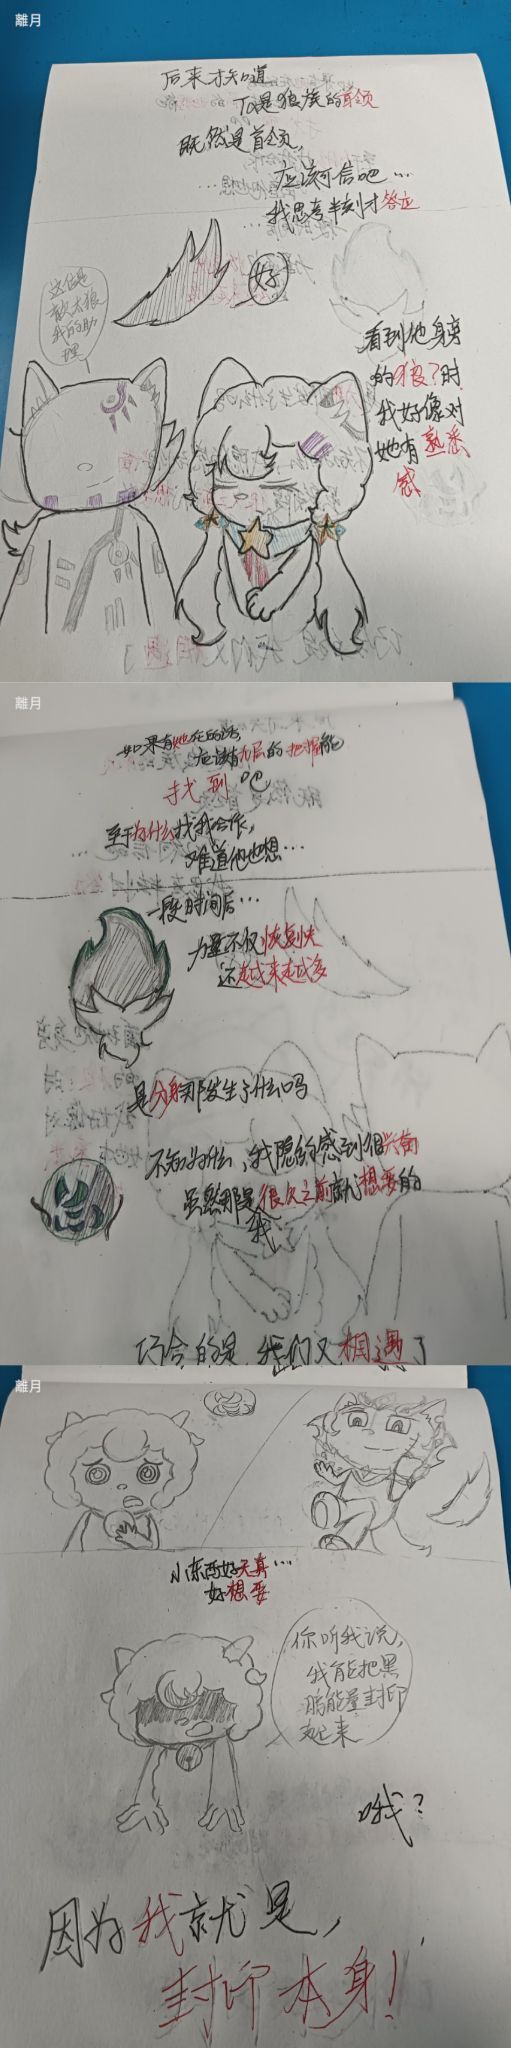 離月
后来才知道
Ta是狼族的首领
既然是首领,
应该可信吧…
我思考半刻才答应
好
这位是
我的助
理
看到他身旁
的狼?时
我好像对
她有熟悉
感
離月
如果有她在的话,
应该有九层的把握能
找到吧
至于为什么找我合作,
难道他也想…
一段时间后…
力量不仅恢复快
还越来越多
是分身那发生了什么吗
不知为什么,我隐约感到很兴奋
虽然那是很久之前就想要的
我
巧合的是,我们又相遇了
離月
小东西好天真…
好想要
你听我说,
我能把黑
暗能量封印
起来
哦?
因为我就是,
封印本身!